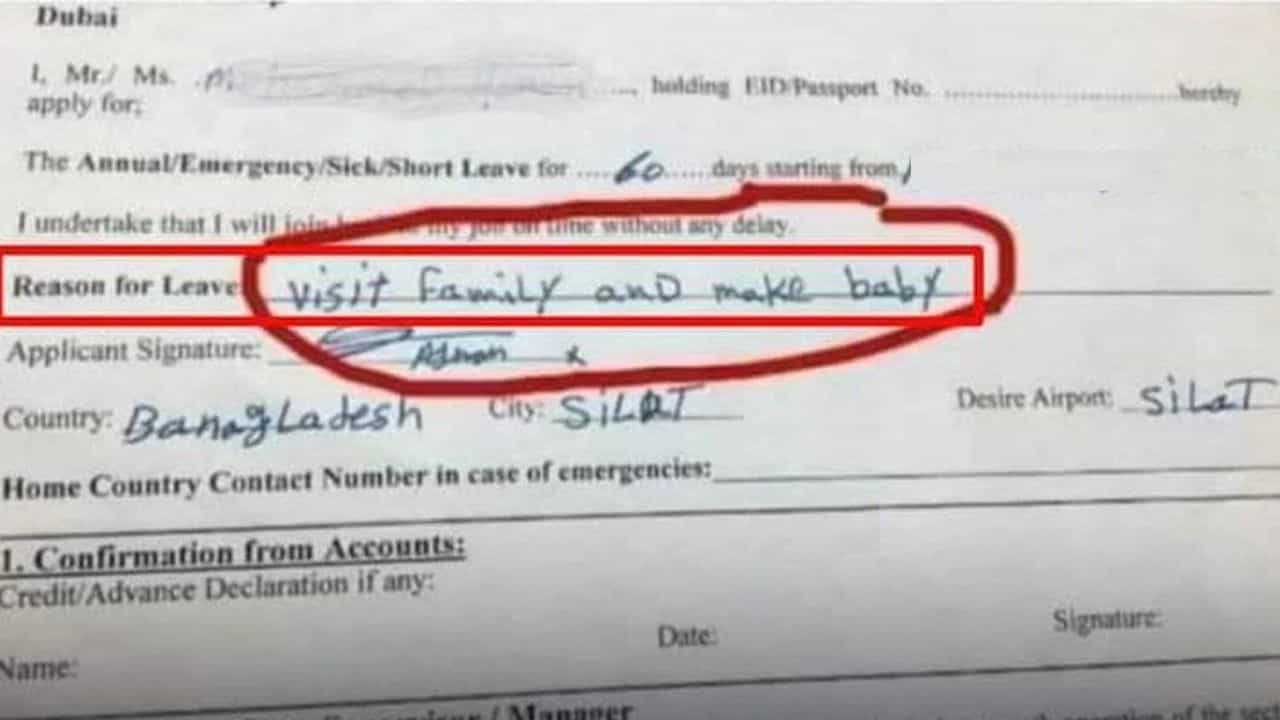 Dubai
I, Mr./ Ms. ...., holding EID/Passport No. ..............................hereby
apply for;
The Annual/Emergency/Sick/Short Leave for ....60......days starting from
I undertake that I will join my job on time without any delay.
Reason for Leave visit family and make baby
Applicant Signature:
Country: BanagLadesh City: SiLaT Desire Airport: SiLaT
Home Country Contact Number in case of emergencies:
1. Confirmation from Accounts:
Credit/Advance Declaration if any:
Date: Signature:
Name:
/ Manager
of the